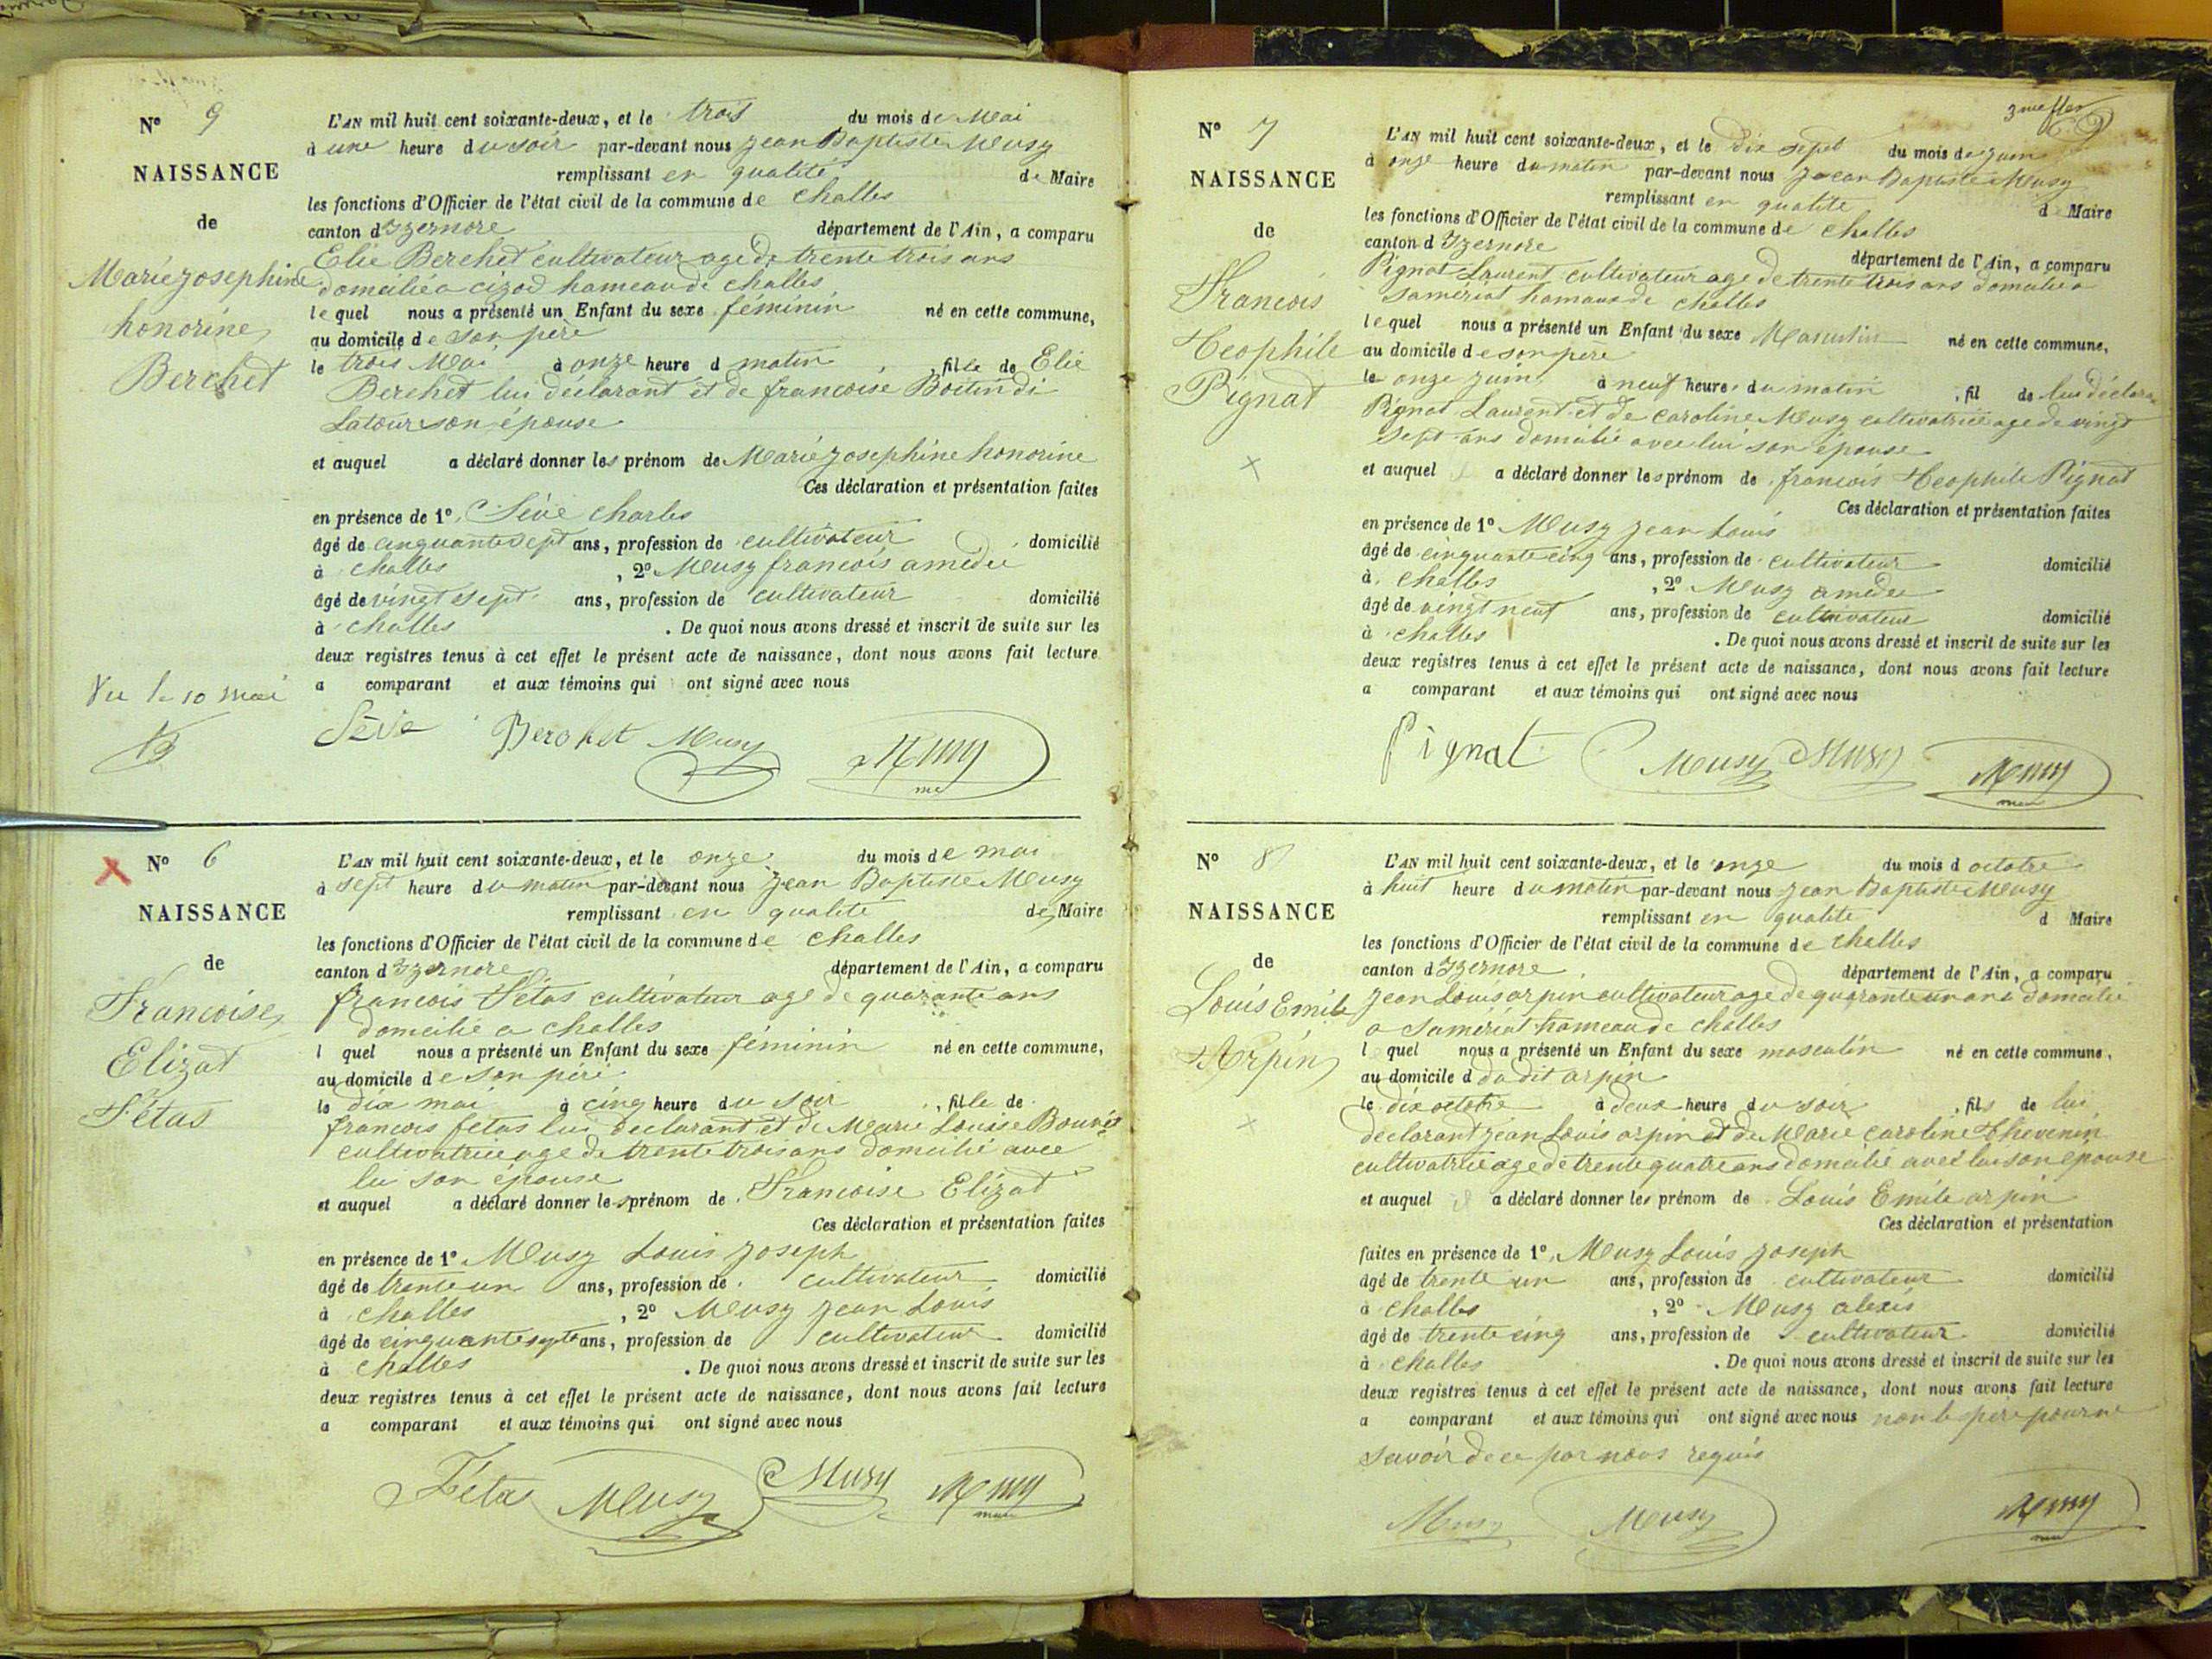 Nº 9
NAISSANCE
de
Marie Josephine
honorine
Berchet
Vu le 10 mai
L'AN mil huit cent soixante-deux, et le trois du mois de Mai
à une heure du soir par-devant nous Jean Baptiste Musy
remplissant en qualité de Maire
les fonctions d'Officier de l'état civil de la commune de Challes
canton d'Izernore département de l'Ain, a comparu
Elie Berchet cultivateur age de trente trois ans
domcilié a cizod hameau de challes
lequel nous a présenté un Enfant du sexe féminin né en cette commune,
au domicile de son père
le trois Mai à onze heure d matin , fille de Elie
Berchet lui déclarant et de francoise Boitin di
Latour son épouse
et auquel a déclaré donner les prénom de Marie Josephine honorine
Ces déclaration et présentation faites
en présence de 1º Séve Charles
âgé de cinquante sept ans, profession de cultivateur domicilié
à challes , 2º Musy francois amédée
âgé de vingt sept ans, profession de cultivateur domicilié
à challes . De quoi nous avons dressé et inscrit de suite sur les
deux registres tenus à cet effet le présent acte de naissance, dont nous avons fait lecture
a comparant et aux témoins qui ont signé avec nous
Séve Berchet Musy Musy
Nº 6
NAISSANCE
de
Francoise
Elizat
Fétas
L'AN mil huit cent soixante-deux, et le onze du mois de mai
à sept heure du matin par-devant nous Jean Baptiste Musy
remplissant en qualité de Maire
les fonctions d'Officier de l'état civil de la commune de Challes
canton d'Izernore département de l'Ain, a comparu
francois Fétas cultivateur age de quarante ans
domcilie a challes
l quel nous a présenté un Enfant du sexe féminin né en cette commune,
au domicile de son péri
le dix mai à cinq heure du soir , fille de
francois fetas lui déclarant et de Marie Louise Bouvét
cultivatrice age de trente trois ans domcilié avec
lu son épouse
et auquel a déclaré donner les prénom de Francoise Elizat
Ces déclaration et présentation faites
en présence de 1º Musy Louis Joseph
âgé de trente un ans, profession de cultivateur domicilié
à challes , 2º Musy Jean Louis
âgé de cinquante septe ans, profession de cultivateur domicilié
à challes . De quoi nous avons dressé et inscrit de suite sur les
deux registres tenus à cet effet le présent acte de naissance, dont nous avons fait lecture
a comparant et aux témoins qui ont signé avec nous
Fétas Musy Musy Musy
3me
Nº 7
NAISSANCE
de
Francois
Téophile
Pignat
L'AN mil huit cent soixante-deux, et le dix sept du mois de juin
à onze heure du matin par-devant nous Jean Baptiste Musy
remplissant en qualité d Maire
les fonctions d'Officier de l'état civil de la commune de Challes
canton d Izernore département de l'Ain, a comparu
Pignat Laurent cultivateur age de trente trois ans domcilié a
samériat hamaux de challes
lequel nous a présenté un Enfant du sexe Masculin né en cette commune,
au domicile de son père
le onze juin à neuf heure du matin , fil de lui déclara
Pignat Laurent et de caroline Musy cultivatrice age de vingt
sept ans domcilié avec lui son épouse
et auquel a déclaré donner les prénom de francois Téophile Pignat
Ces déclaration et présentation faites
en présence de 1º Musy Jean Louis
âgé de cinquante cinq ans, profession de cultivateur domicilié
à challes , 2º Musy amédée
âgé de vingt neuf ans, profession de cultivateur domicilié
à challes . De quoi nous avons dressé et inscrit de suite sur les
deux registres tenus à cet effet le présent acte de naissance, dont nous avons fait lecture
a comparant et aux témoins qui ont signé avec nous
Pignat Musy Musy Musy
Nº 8
NAISSANCE
de
Louis Emile
Arpin
L'AN mil huit cent soixante-deux, et le onze du mois d octobre
à huit heure du matin par-devant nous Jean Baptiste Musy
remplissant en qualité d Maire
les fonctions d'Officier de l'état civil de la commune de challes
canton d Izernore département de l'Ain, a comparu
Jean Louis arpin cultivateur age de quarante un ans domcilié
a samériat hameau de challes
l quel nous a présenté un Enfant du sexe masculin né en cette commune,
au domicile d du dit arpin
le dix octobre à deux heure du soir , fils de lui
declarant Jean Louis arpin et de Marie caroline Thevenin
cultivatrice age de trente quatre ans domcilié avec lui son épouse
et auquel il a déclaré donner les prénom de Louis Emile arpin
Ces déclaration et présentation
faites en présence de 1º Musy Louis Joseph
âgé de trente un ans, profession de cultivateur domicilié
à challes , 2º Musy alexis
âgé de trente cinq ans, profession de cultivateur domicilié
à challes . De quoi nous avons dressé et inscrit de suite sur les
deux registres tenus à cet effet le présent acte de naissance, dont nous avons fait lecture
a comparant et aux témoins qui ont signé avec nous non le père pour ne
savoir de ce par nous requis
Musy Musy Musy